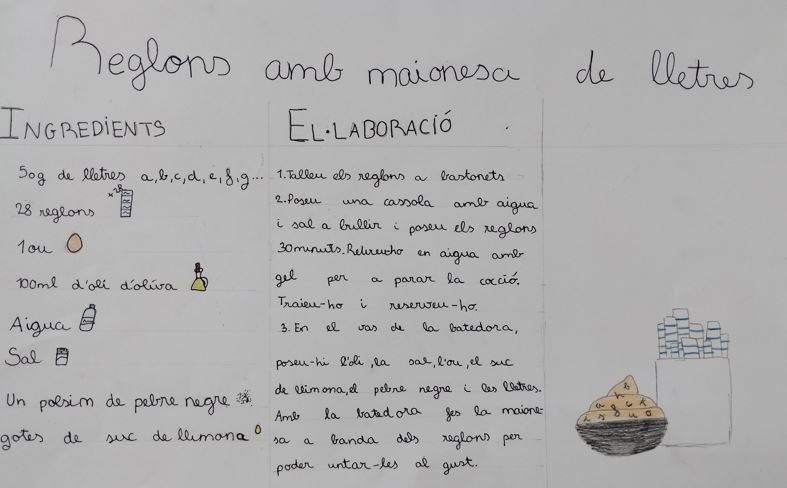 Reglons amb maionesa de lletres
INGREDIENTS
50g de lletres a,b,c,d,e,f,g...
28 reglons x28
1 ou
100ml d'oli d'oliva
Aigua
Sal
Un polsim de pebre negre
gotes de suc de llimona
EL·LABORACIÓ
1.Talleu els reglons a bastonets
2.Poseu una cassola amb aigua
i sal a bullir i poseu els reglons
30minuts. en aigua amb
gel per a parar la cocció.
Traieu-ho i reserveu-ho.
3. En el vas de la batedora,
poseu-hi l'oli ,la sal,l'ou,el suc
de llimona,el pebre negre i les lletres.
Amb la batedora fes la maione-
sa a banda dels reglons per
poder untar-les al gust.